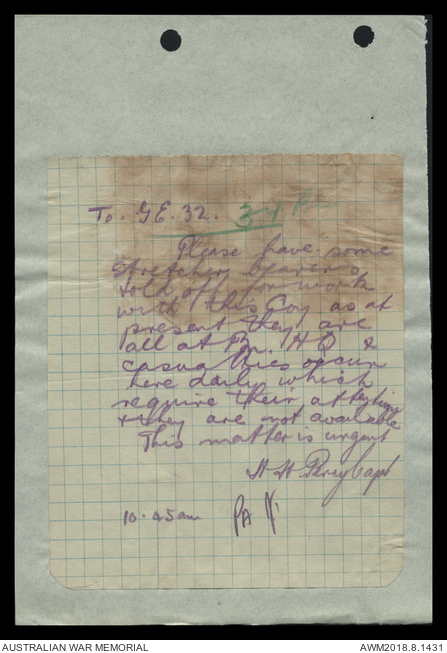 To. G.E. 32.
Please have some
stretcher bearers
told off for work
with this Coy as at
present they are
all at Bn. HQ &
casualties occur
here daily which
require their
& they are not available
This matter is urgent
H H Percy Capt
10.45am
AUSTRALIAN WAR MEMORIAL
AWM2018.8.1431